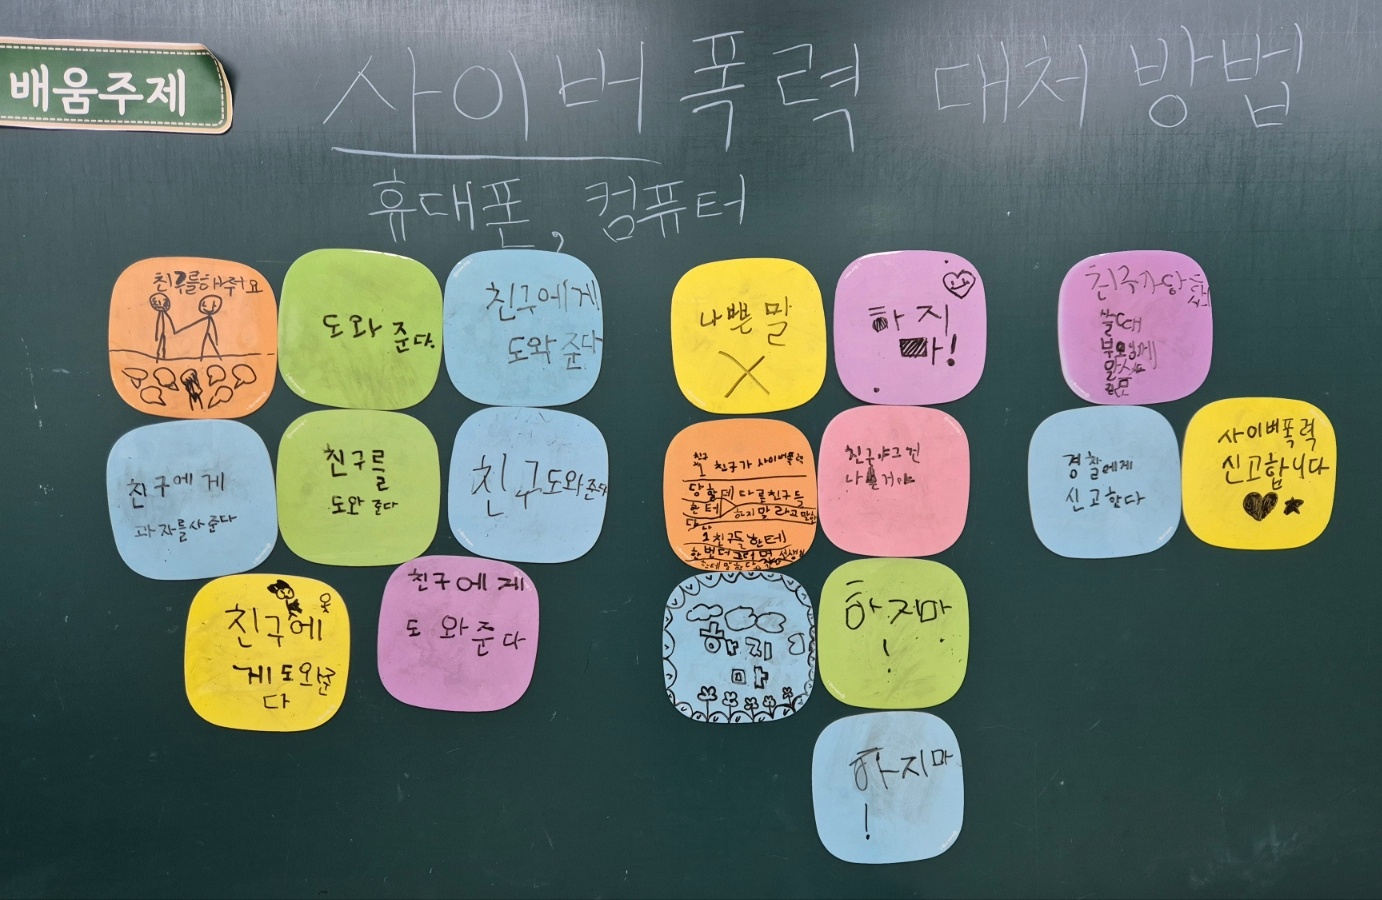 배움주제
사이버폭력 대처 방법
휴대폰, 컴퓨터
친구를해줘요
도와 준다.
친구에게
도와 준다
친구에게
과자를사준다
친구를
도와 준다
친구도와준다
친구에
게도와준
다
친구에게
도와준다
나쁜 말
하지
마!
친구가 사이버폭력
당할때 다른친구들
한테
하지말라고말한
친구들한테
한번더그러면 선생님
한테말한다
친구야그런
하지
마
하지마
!
하지마
!
친구가당
쓸때
부모님께
경찰에게
신고한다
사이버폭력
신고합니다